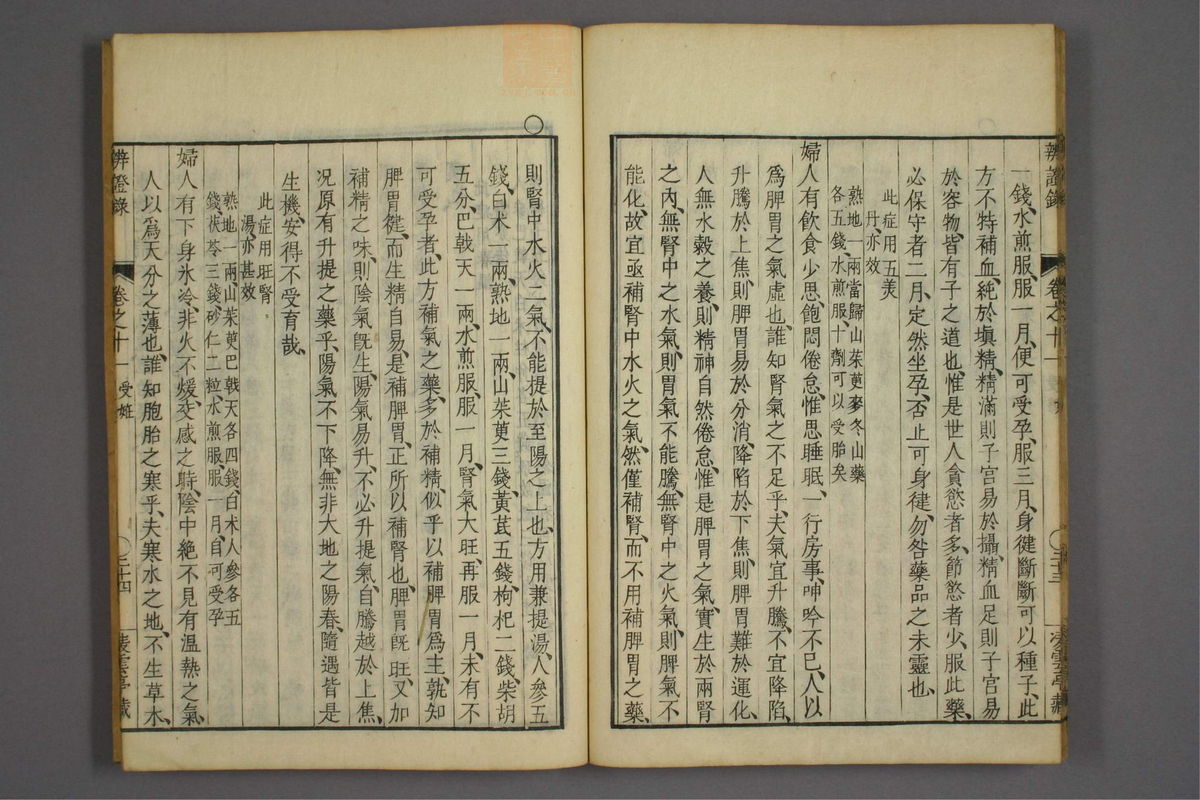 辨證錄 卷之十一 三十三 凌雲亭藏
一錢水煎服、服一月、便可受孕、服三月、身健、斷斷可以種子、此
方不特補血、純於塡精、精滿則子宮易於攝、精血足則子宮易
於容物、皆有子之道也、惟是世人貪慾者多、節慾者少、服此藥、
必保守者二月、定然坐孕、否止可身健、勿咎藥品之未靈也、
此症用五美
丹、亦效
熟地一兩當歸山茱萸麥冬山藥
各五錢、水煎服、十劑可以受胎矣
婦人有飲食少思、飽悶倦怠、惟思睡眠、一行房事、呻吟不已、人以
爲脾胃之氣虛也、誰知腎氣之不足乎、夫氣宜升騰、不宜降陷、
升騰於上焦、則脾胃易於分消、降陷於下焦、則脾胃難於運化、
人無水穀之養、則精神自然倦怠、惟是脾胃之氣、實生於兩腎
之內、無腎中之水氣、則胃氣不能騰、無腎中之火氣、則脾氣不
能化、故宜亟補腎中水火之氣、然僅補腎、而不用補脾胃之藥、
則腎中水火二氣、不能提於至陽之上也、方用兼提湯、人參五
錢、白朮一兩、熟地一兩、山茱萸三錢、黃芪五錢、枸杞二錢、柴胡
五分、巴戟天一兩、水煎服、服一月、腎氣大旺、再服一月、未有不
可受孕者、此方補氣之藥、多於補精、似乎以補脾胃爲主、孰知
脾胃健、而生精自易、是補脾胃、正所以補腎也、脾胃旣旺、又加
補精之味、則陰氣旣生、陽氣易升、不必升提氣、自騰越於上焦、
况原有升提之藥乎、陽氣不下降、無非大地之陽春、隨遇皆是
生機、安得不受育哉、
此症用旺腎
湯、亦甚效
熟地一兩、山茱萸巴戟天各四錢、白朮人參各五
錢、茯苓三錢、砂仁二粒、水煎服、服一月、自可受孕
婦人有下身氷冷、非火不煖、交感之時、陰中絶不見有溫熱之氣、
人以爲天分之薄也、誰知胞胎之寒乎、夫寒水之地、不生草木、
辨證錄 卷之十一 受妊 三十四 凌雲亭藏